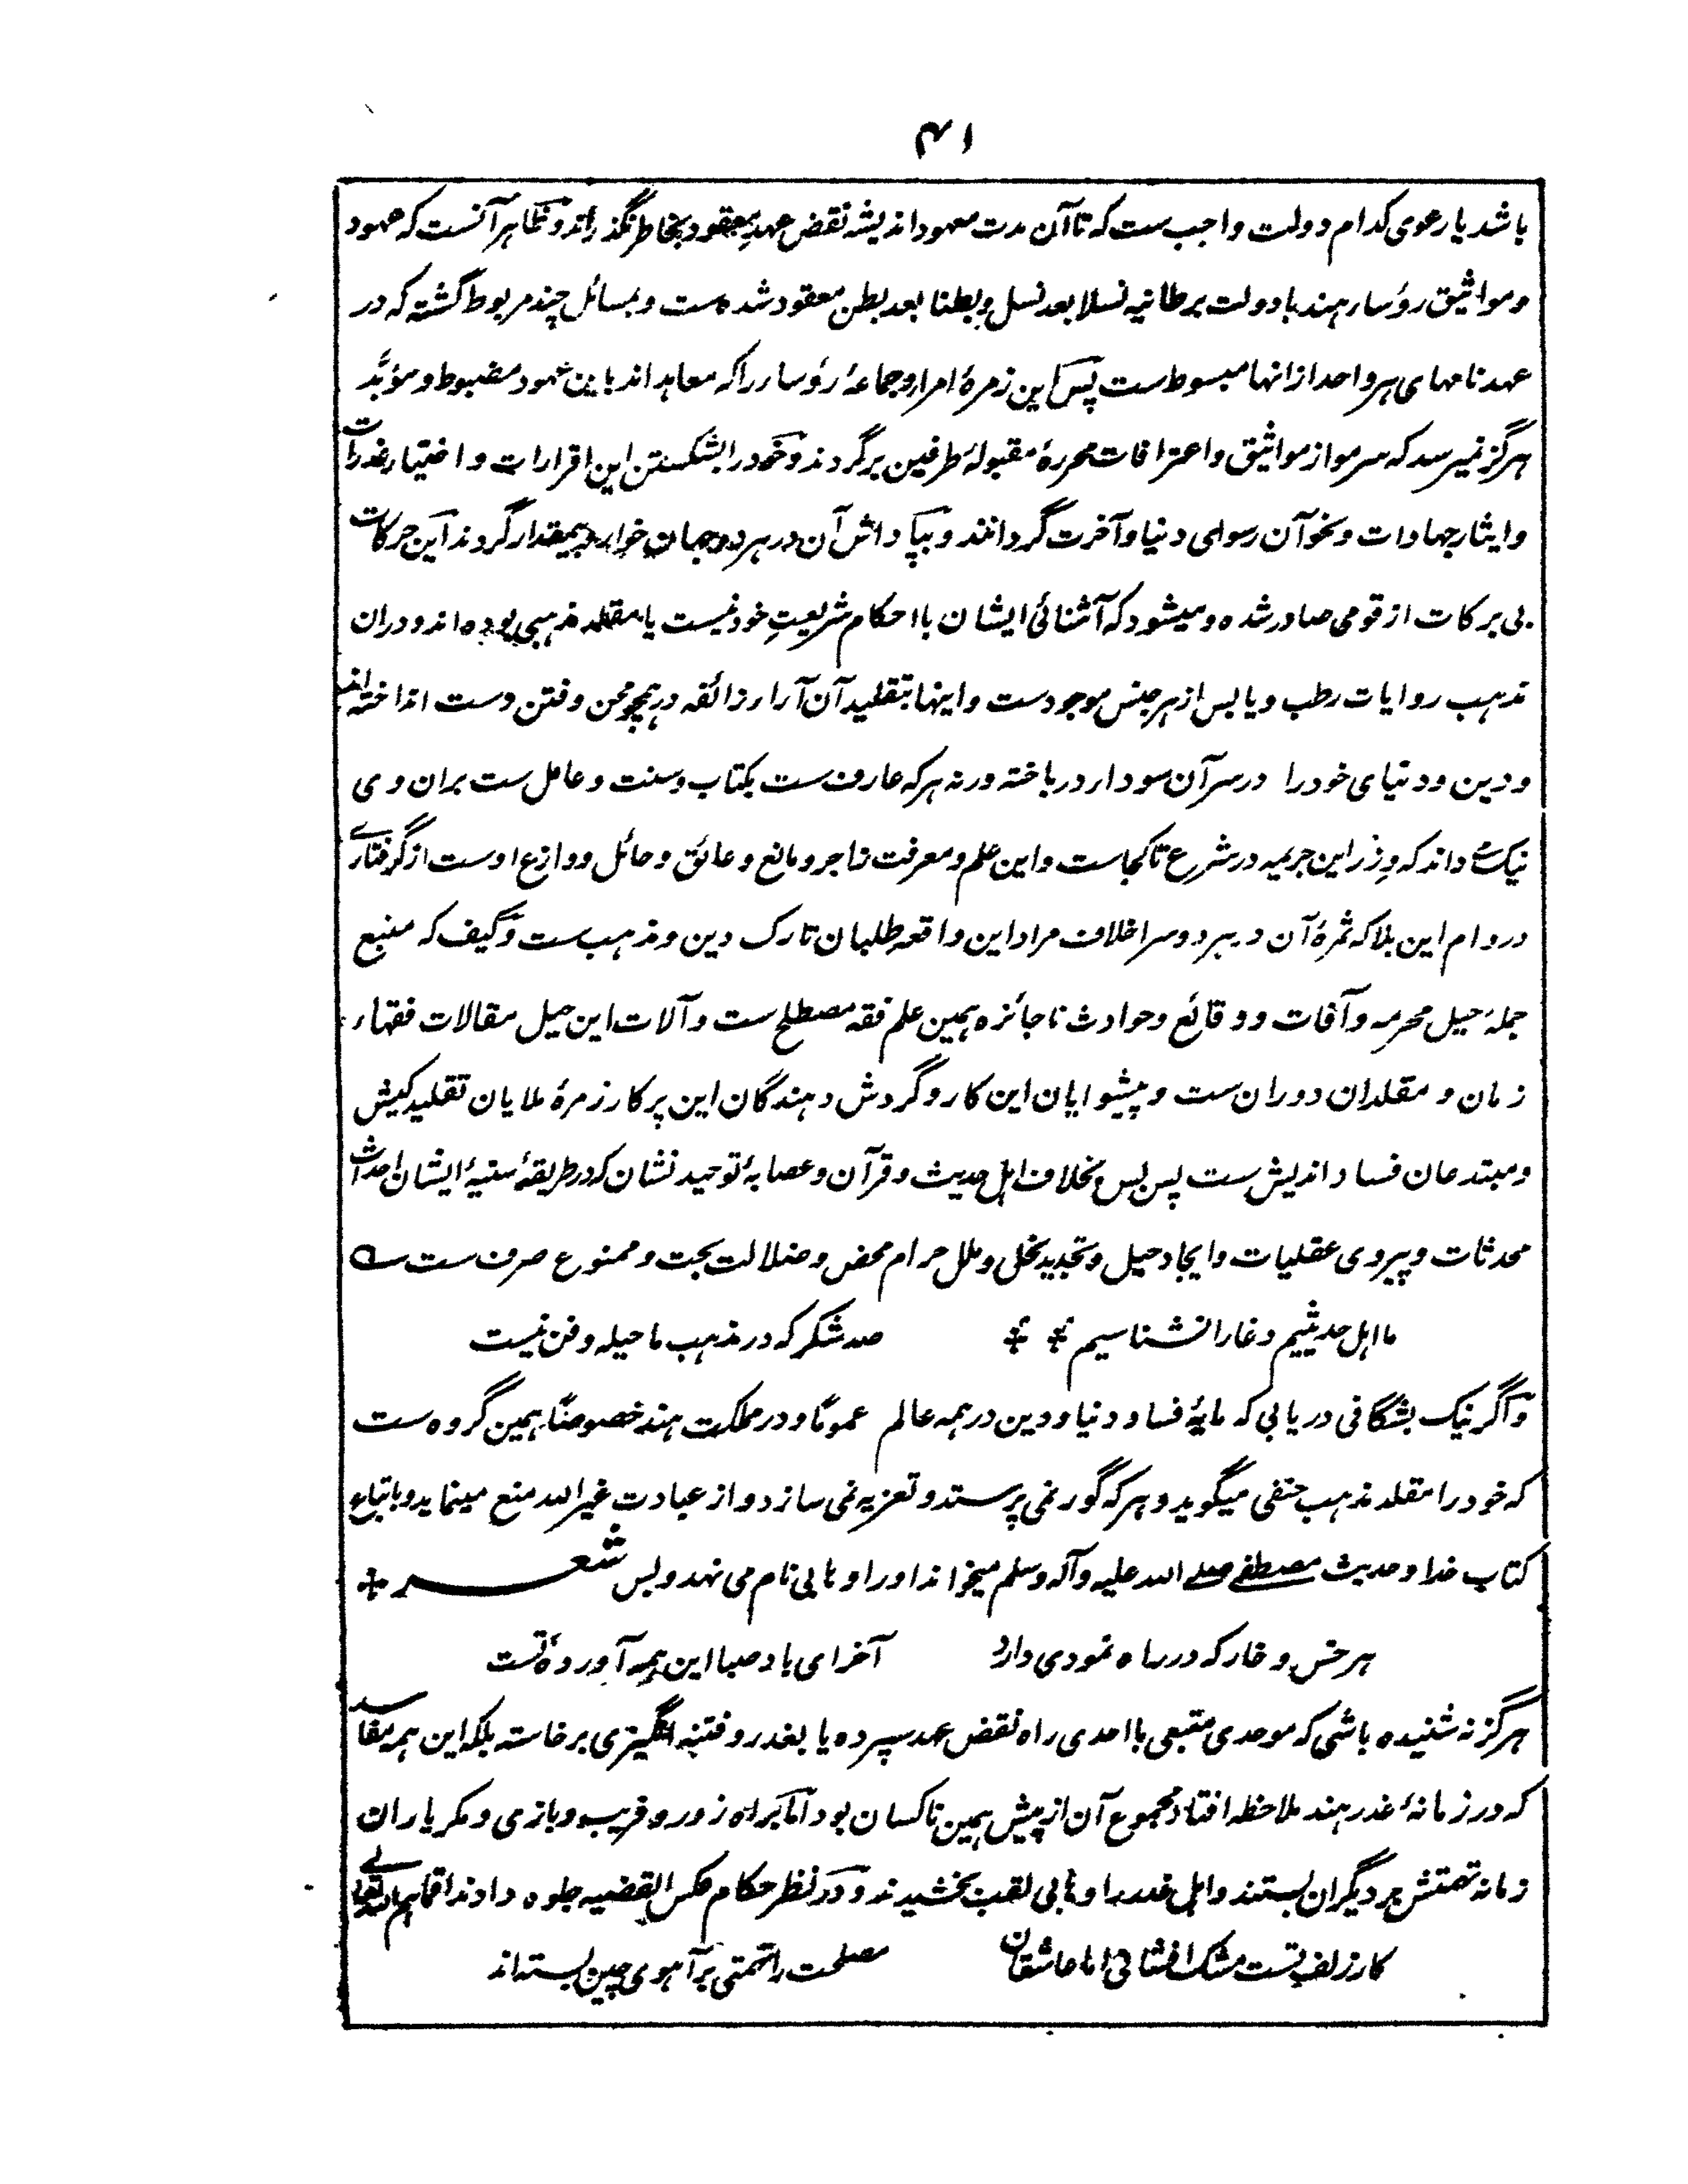 ۴۱
باشد یا رعوی کدام دولت واجب ست که تا آن مدت معهود اندیشه نقض عهد معقود بخاطر نگذراند و ظاهر آنست که عهود
و مواثیق رؤسار هند با دولت برطانیه نسلا بعد نسل و بطنا بعد بطن معقود شده ست و بمسائل چند مربوط گشته که در
عهد نامهای هر واحد ازانها مبسوط ست پس این زمرۀ امرا و جماعۀ رؤسار را که معاهد اند باین عهود مضبوط و مؤبّد
هرگز نمیرسد که سر مو از مواثیق و اعترافات محررۀ مقبولۀ طرفین برگردند و خود را بشکستن این اقرارات و اختیار غدرات
و ایثار جهادات و نحو آن رسوای دنیا و آخرت گردانند و بپاداش آن در هر دو جهان خوار و بیمقدار گردند این حرکات
بی برکات از قومی صادر شده و میشود که آشنائی ایشان با احکام شریعتِ خود نیست یا مقلد مذهبی بوده اند و دران
مذهب روایات رطب و یابس از هر جنس موجودست و اینها بتقلید آن آرار زائفه در همچو محن و فتن دست انداخته اند
و دین و دنیای خود را در سر آن سودار در باخته ورنه هر که عارف ست بکتاب و سنت و عامل ست بران وی
نیک داند که وِزر این جریمه در شرع تا کجاست و این علم و معرفت زاجر و مانع و عائق و حائل و وازع اوست از گرفتارے
در دام این بلا که ثمرۀ آن در هر دو سرا خلاف مراد این واقعه طلبان تارک دین و مذهب ست و کیف که منبع
جملۀ حیل محرمه و آفات و وقائع و حوادث ناجائزه همین علم فقه مصطلح ست و آلات این حیل مقالات فقهاء
زمان و مقلدان دوران ست و پیشوایان این کار و گردش دهندگان این پرکار زمرۀ ملایان تقلید کیش
و مبتدعان فساد اندیش ست پس بس بخلاف اهل حدیث و قرآن و عصابۀ توحید نشان که در طریقۀ سنیۀ ایشان احداث
محدثات و پیروی عقلیات و ایجاد حیل و تجدید نحل و ملل حرام محض و ضلالت بحت و ممنوع صرف ست ے
ما اهل حدیثیم دغا را نشناسیم ** صد شکر که در مذهب ما حیله و فن نیست
و اگر نیک بشگافی دریابی که مایۀ فساد دنیا و دین در همه عالم عموماً و در مملکت هند خصوصاً همین گروه ست
که خود را مقلد مذهب حنفی میگوید و هر که گور نمی پرستد و تعزیه نمی سازد و از عبادت غیر الله منع مینماید و باتباع
کتاب خدا و حدیث مصطفے صلے الله علیه و آله و سلم میخواند او را وهابی نام می نهد و بس شعر *
هر خس و خار که در راه نمودی دارد آخر ای باد صبا این همه آوردۀ تست
هرگز نه شنیده باشی که موحدی متبعی با احدی راه نقض عهد سپرده یا بغدر و فتنه انگیزی برخاسته بلکه این همه مفاسد
که در زمانۀ غدر هند ملاحظه افتاد مجموع آن از پیش همین ناکسان بود اما براه زور و فریب و بازی و مکر یاران
زمانه تهمتش بر دیگران بستند و اهل غدر را وهابی لقب بخشیدند و در نظر حکام عکس القضیه جلوه دادند
کار زلف تست مشک افشانی اما عاشقان مصلحت را تهمتی بر آهوی چین بسته اند